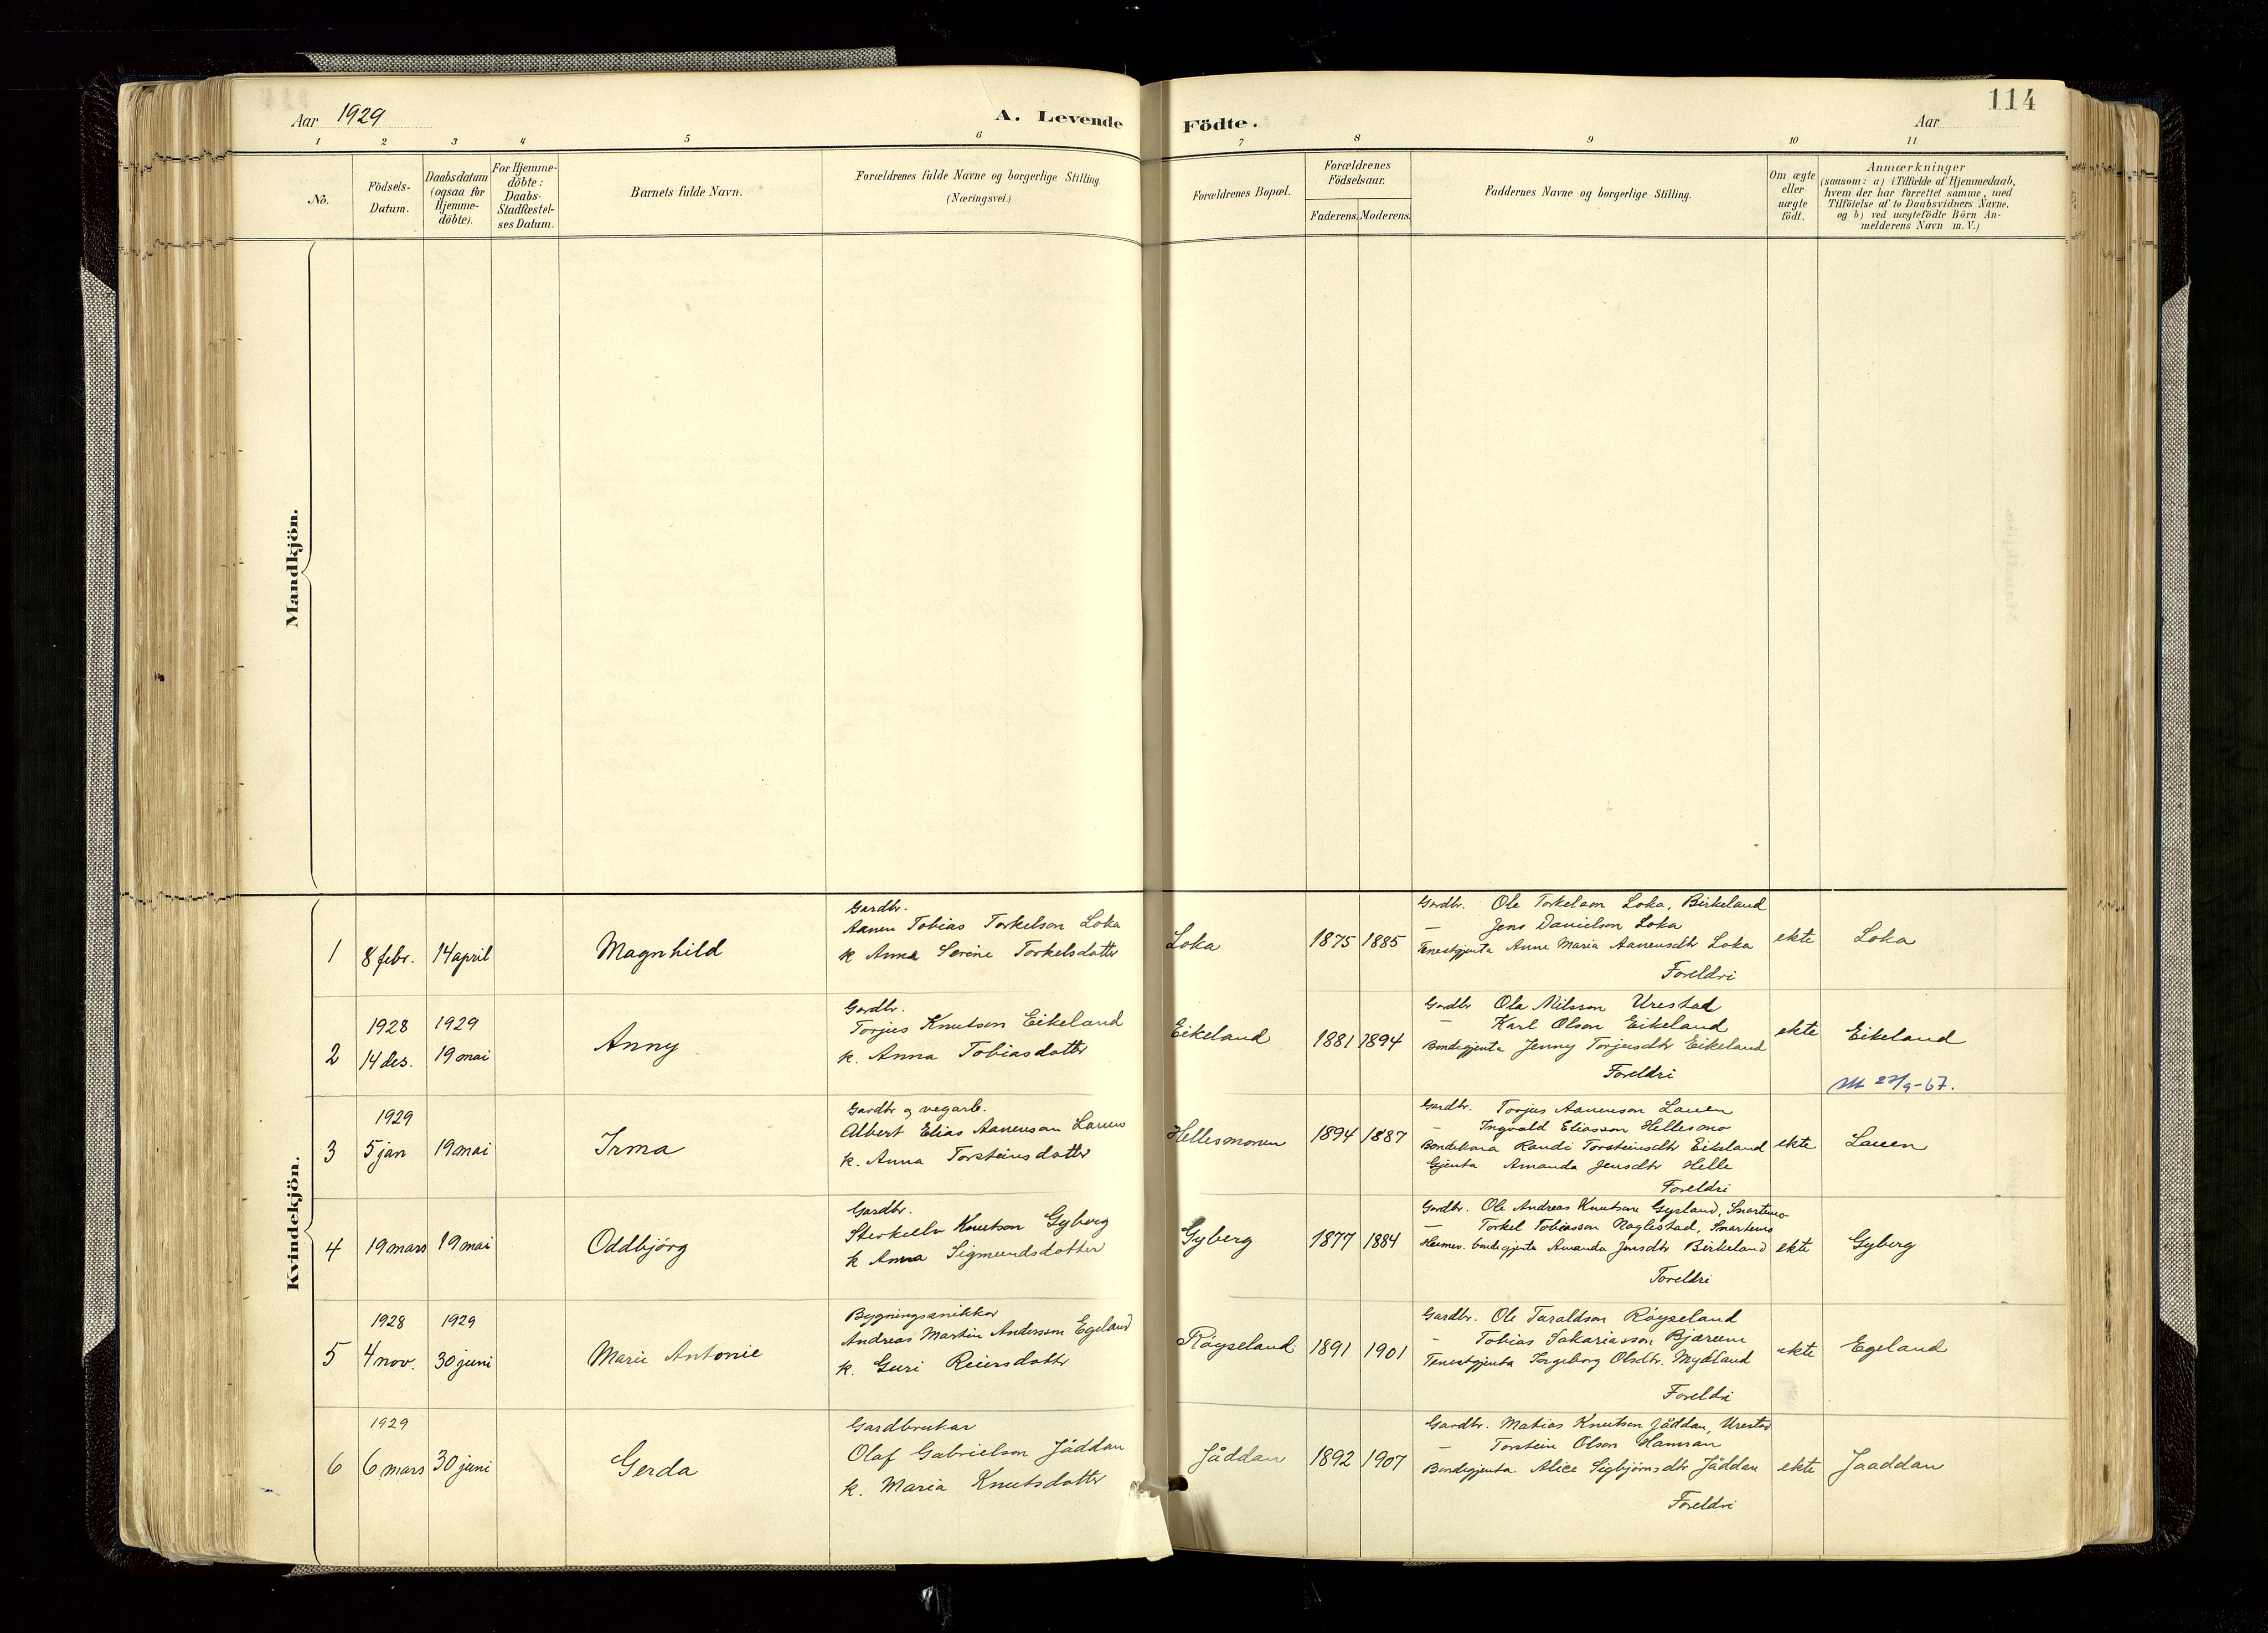 114
Aar 1929
A. Levende Födte.
Aar
1 2 3 4 5 6 7 8 9 10 11
No.
Födsels-
Datum.
Daabsdatum
(ogsaa for
Hjemme-
döbte).
For Hjemme-
döbte:
Daabs-
Stadfæstel-
ses Datum.
Barnets fulde Navn.
Forældrenes fulde Navne og borgerlige Stilling.
(Næringsvei.)
Forældrenes Bopæl.
Forældrenes
Födselsaar.
Faderens. Moderens.
Faddernes Navne og borgerlige Stilling.
Om ægte
eller
uægte
født.
Anmærkninger
(saasom: a) i Tilfælde af Hjemmedaab,
hvem der har forrettet samme, med
Tilföielse af to Daabsvidners Navne.
og b) ved uægtefödte Börn An-
melderens Navn m.V.)
Mandkjön.
Kvindekjön.
1
8 febr.
14 april
Magnhild
Gardbr.
Aanen Tobias Torkelson Loka
k Anna Serine Torkelsdotter
Loka
1875 1885
Gardbr. Ole Torkelson Loka, Birkeland
— Jens Danielson Loka
Tenestgjenta Anne Maria Aanensdtr Loka
Foreldri
ekte
Loka
2
1928
14 des.
1929
19 mai
Anny
Gardbr.
Torjus Knutson Eikeland
k. Anna Tobiasdotter
Eikeland
1881 1894
Gardbr Ola Nilsson Urestad
— Karl Olson Eikeland
Bondegjenta Jenny Torjusdtr Eikeland
Foreldri
ekte
Eikeland
27/9-67.
3
1929
5 jan
19 mai
Irma
Gardbr og vegarb.
Albert Elias Aanenson Lauen
k. Anna Torsteinsdotter
Hellesmonen
1894 1887
Gardbr. Torjus Aanenson Lauen
— Ingvald Eliasson Hellesmo
Bondekona Randi Torsteinsdtr Eikeland
Gjenta Amanda Jensdtr Helle
Foreldri
ekte
Lauen
4
19 mars
19 mai
Oddbjörg
Gardbr.
Sterkelv Knutson Gyberg
k Anna Sigmundsdotter
Gyberg
1877 1884
Gardbr. Ole Andreas Knutson Gysland, Snartemo
— Torkel Tobiasson Naglestad, Snartemo
Heimev. bondegjenta Amanda Jensdtr Birkeland
Foreldri
ekte
Gyberg
5
1928
4 nov.
1929
30 juni
Marie Antonie
Bygningssnikkar
Andreas Martin Anderson Egeland
k. Guri Reiersdotter
Röyseland
1891 1901
Gardbr. Ole Taraldson Röyseland
— Tobias Sakariasson Bjærum
Tenestgjenta Ingeborg Olsdtr. Mydland
Foreldri
ekte
Egeland
6
1929
6 mars
30 juni
Gerda
Gardbrukar
Olaf Gabrielson Jåddan
k. Maria Knutsdotter
Jåddan
1892 1907
Gardbr. Matias Knutson Jåddan, Urestad
— Torstein Olson Hamran
Bondegjenta Alice Sigbjörnsdtr Jåddan
Foreldri
ekte
Jaaddan